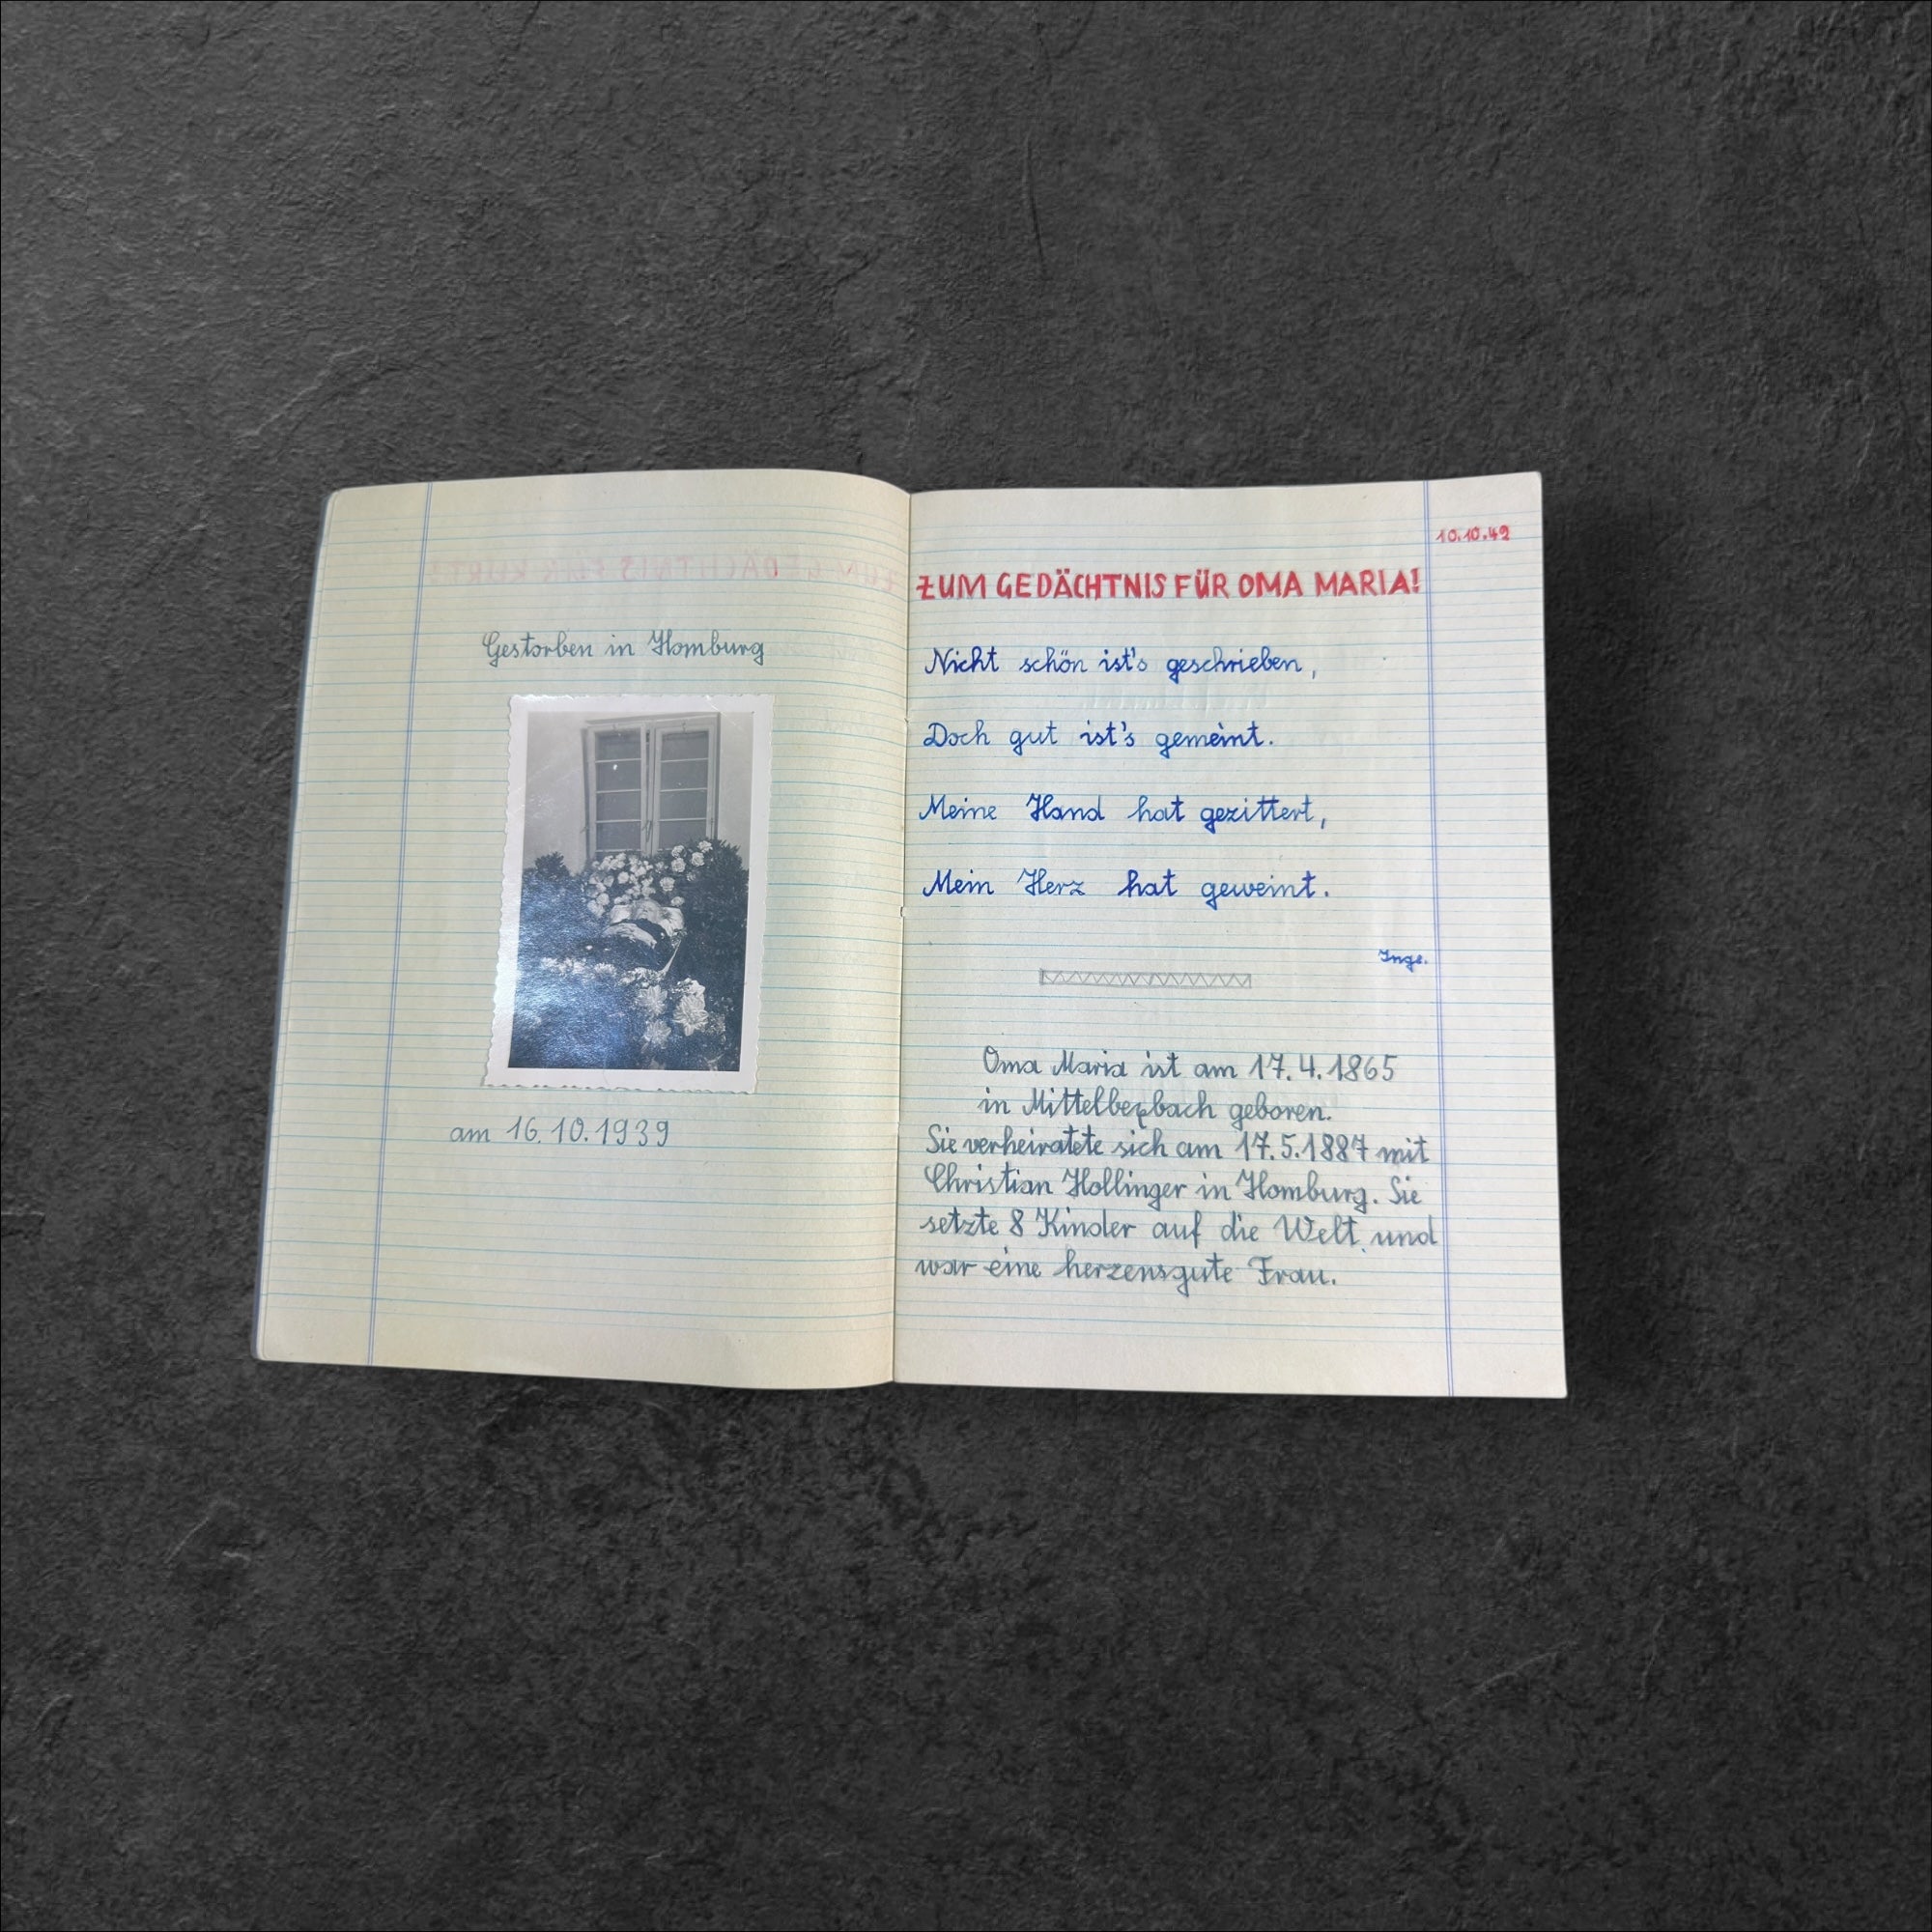 Gestorben in Homburg
am 16.10.1939
10.10.42
ZUM GEDÄCHTNIS FÜR OMA MARIA!
Nicht schön ist's geschrieben,
Doch gut ist's gemeint.
Meine Hand hat gezittert,
Mein Herz hat geweint.
Inge.
Oma Maria ist am 17.4.1865
in Mittelbexbach geboren.
Sie verheiratete sich am 17.5.1887 mit
Christian Hollinger in Homburg. Sie
setzte 8 Kinder auf die Welt und
war eine herzensgute Frau.